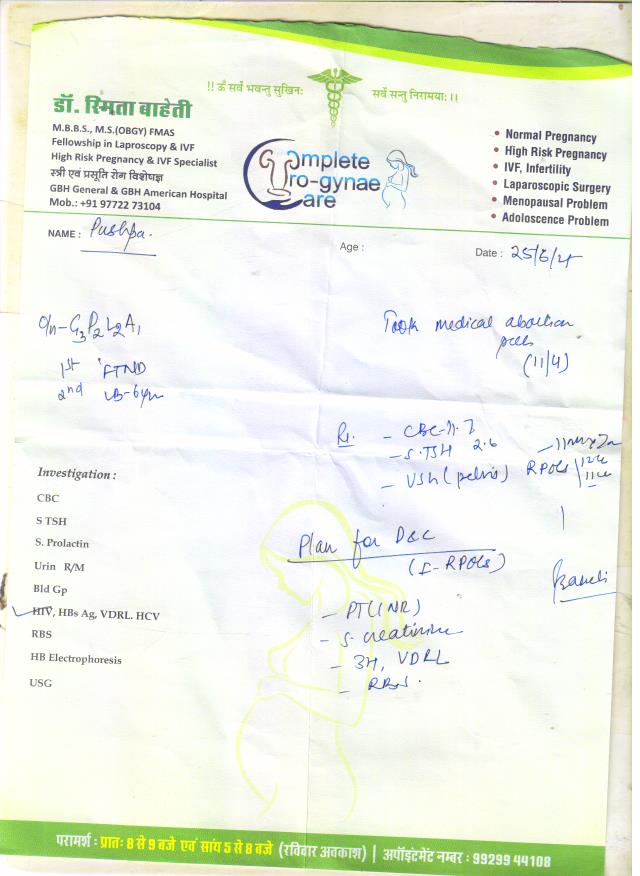 !! ॐ सर्वे भवन्तु सुखिनः सर्वे सन्तु निरामयाः !!
डॉ. स्मिता बाहेती
M.B.B.S., M.S.(OBGY) FMAS
Fellowship in Laproscopy & IVF
High Risk Pregnancy & IVF Specialist
स्त्री एवं प्रसूति रोग विशेषज्ञ
GBH General & GBH American Hospital
Mob.: +91 97722 73104
Complete
Uro-gynae
Care
• Normal Pregnancy
• High Risk Pregnancy
• IVF, Infertility
• Laparoscopic Surgery
• Menopausal Problem
• Adoloscence Problem
NAME : Pushpa.
Age :
Date : 25/6/25
O/n - G3P2L2A1
1st FTND
2nd LB-6yr
Took medical abortion
pills
(11/4)
R:. - CBC-11.7
- S.TSH 2.6
- USG (pelvis) RPOCs
Plan for D&C
(I-RPOCs)
- PT(INR)
- S. creatinine
- 3H, VDRL
- RBS.
Investigation :
CBC
S TSH
S. Prolactin
Urin R/M
Bld Gp
HIV, HBs Ag, VDRL. HCV
RBS
HB Electrophoresis
USG
परामर्श : प्रातः 8 से 9 बजे एवं सांय 5 से 8 बजे (रविवार अवकाश) | अपॉइंटमेंट नम्बर : 99299 44108